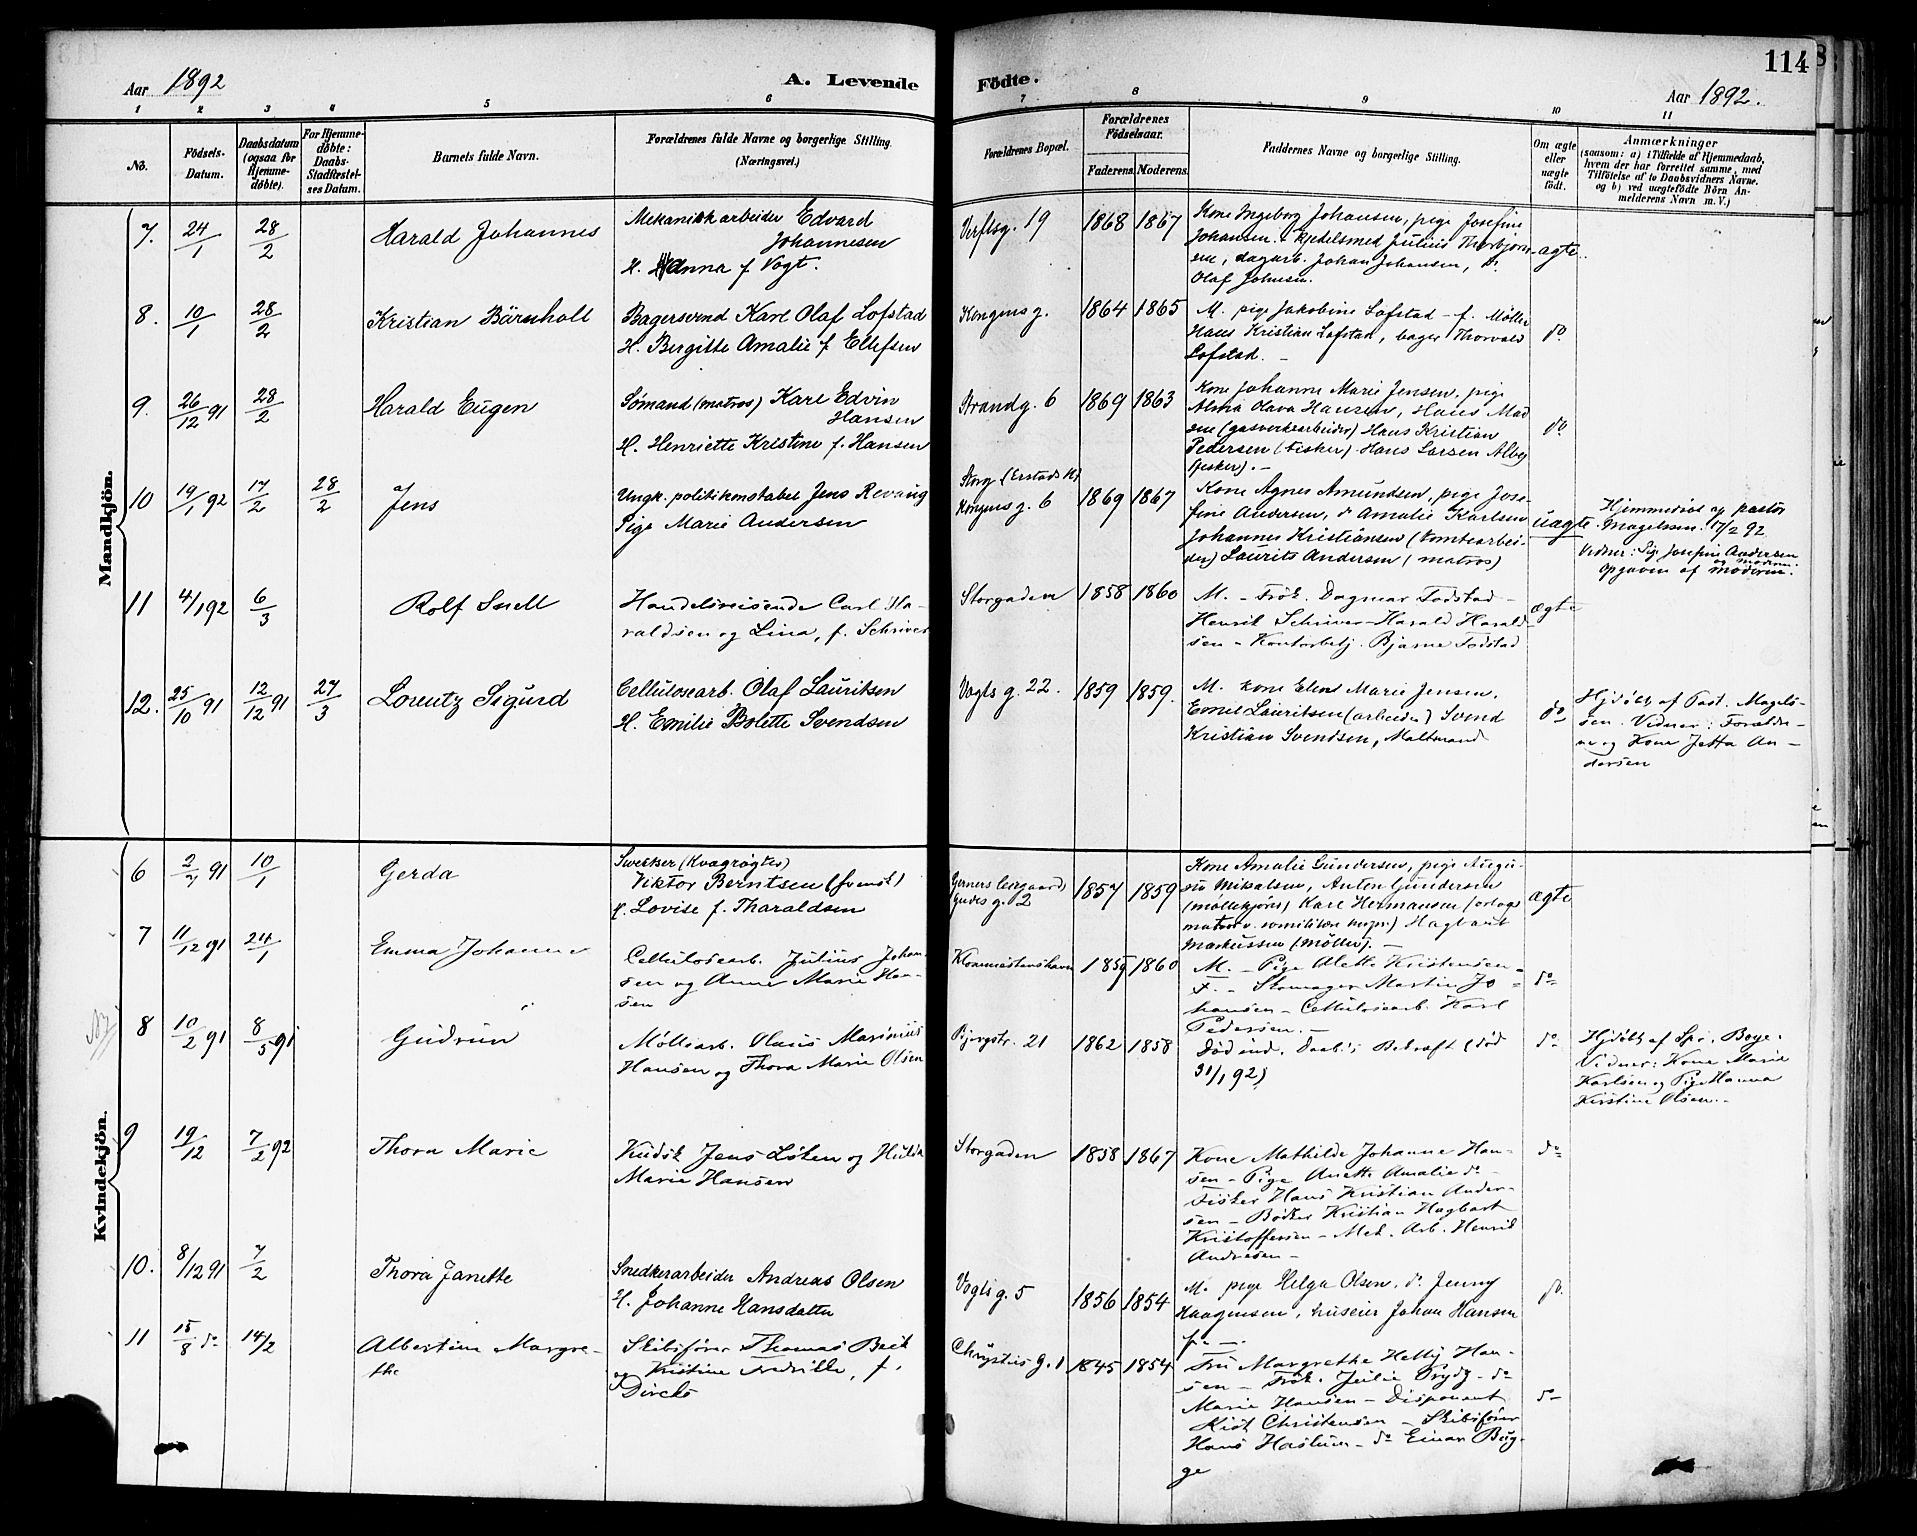 Aar 1892
A. Levende
Födte.
Aar 1892.
114
1 2 3 4 5 6 7 8 9 10 11
No.
Födsels-
Datum.
Daabsdatum
(ogsaa for
Hjemme-
döbte).
For Hjemme-
döbte:
Daabs-
Stadfæstel-
ses Datum.
Barnets fulde Navn.
Forældrenes fulde Navne og borgerlige Stilling.
(Næringsvei.)
Forældrenes Bopæl.
Forældrenes
Födselsaar.
Faderens. Moderens.
Faddernes Navne og borgerlige Stilling.
Om ægte
eller
uægte
födt.
Anmærkninger
(saasom: a) i Tilfælde af Hjemmedaab,
hvem der har forrettet samme, med
Tilföielse af to Daabsvidners Navne.
og b) ved uægtefödte Börn An-
melderens Navn m. V.)
Mandkjön.
7. 24/1 28/2 Harald Johannes
Mekanisk arbeider Edvard
Johannesen
H. Hanna f. Vogt.
Verftsg. 19 1868 1867
Kone Ingeborg Johansen, pige Josefine
Johansen. Kjedelsmed Julius Thorbjörn-
sen, dagarb. Johan Johansen, do.
Olaf Johnsen.
ægte.
8. 10/1 28/2 Kristian Bärnholt
Bagersvend Karl Olaf Lofstad
H. Bergitte Amalie f. Ellefsen
Kongens g. 1864 1865
M. pige Jakobine Lofstad - f. Møller
Hans Kristian Lofstad, bager Thorvald
Lofstad. -
do.
9. 26/12 91 28/2 Harald Eugen
Sømand (matros) Karl Edvin
Hansen
H. Henriette Kristine f. Hansen
Strandg. 6 1869 1863
Kone Johanne Marie Jensen, pige
Alma Olava Hansen, Hans Mad
sen (gasverksarbeider) Hans Kristian
Pedersen (fisker) Hans Larsen Alby
(fisker). -
do.
10 19/1 92 17/2 28/2 Jens
Ungk. politikonstabel Jens Revaug
Pige Marie Andersen
Storg (Erstads H)
Kongens g. 6 1869 1867
Kone Agnes Amundsen, pige Jose-
fine Andersen, do Amalie Karlsen
Johannes Kristiansen (tomtearbei-
der) Laurits Andersen (matros)
uægte.
Hjemmedöbt af pastor
Magelssen. 17/2 92
Vidner: Pige Josefine Andersen
og moderen.
Opgaven af moderen.
11 4/1 92 6/3 Rolf Snell
Handelsreisende Carl Ha-
raldsen og Lina, f. Schriver
Storgaden 1858 1860
M. - Frök. Dagmar Fodstad -
Henrik Schriver - Harald Harald-
sen - Kontorbetj. Bjarne Fodstad
ægte
12. 25/10 91 12/12 91 27/3 Lorentz Sigurd
Cellulosearb. Olaf Lauritsen
H. Emilie Bolette Svendsen
Vogts g. 22. 1859 1859.
M. kone Eline Marie Jensen.
Emil Lauritsen (arbeider) Svend
Kristian Svendsen, Maltmand
do
Hjdöbt af Past. Magels-
sen. Vidner: Forældre-
ne og Kone Jetta An-
dersen
Kvindekjön.
6 2/7 91 10/1 Gerda
Sveitser (Kvægrögter)
Viktor Berntsen (svensk)
H. Lovise f. Tharaldsen
Gudes g. 2 1857 1859
Kone Amalie Gundersen, pige Augu-
sta Mikalsen, Anton Gundersen
(møllekjører) Karl Hermansen (orlogs
Hagbart
Markussen (Møller). -
ægte
7 11/12 91 24/1 Emma Johanne
Cellulosearb. Julius Johan-
sen og Anne Marie Han-
sen
1859 1860
M. - Pige Alette Kristensen -
F. - Skomager Martin Jo-
hansen - Cellulosearb. Karl
Pedersen. -
do
8 10/2 91 8/5 91 Gudrun
Mølleearb. Olaus Marinius
Hansen og Thora Marie Olsen
Bjergstr. 21 1862 1858
Död ind. Daab. s Bekræft (död
31/1 92)
do
Hjdöbt af Spr. Boye.
Vidner: Kone Marie
Karlsen og Pige Hanna
Kirstine Olsen. -
9 19/12 7/2 92 Thora Marie
Kudsk Jens Løken og Hulda
Marie Hansen
Storgaden 1858 1867
Kone Mathilde Johanne Han-
sen - Pige Anette Amalie do -
Fisker Hans Kristian Ander-
sen - Bödker Kristian Hagbart
Kristoffersen - Mek. Arb. Henrik
Andresen -
do
10. 8/12 91 7/2 Thora Janette
Snedkerarbeider Andreas Olsen
H. Johanne Hansdatter
Vogts g. 5 1856 1854
M. pige Helga Olsen, do. Jenny
Haagensen, huseier Johan Hansen
do.
11 15/8 do 14/2 Albertine Margre-
the
Skibsfører Thomas Beck
og Kristine Fredrikke, f.
Dircks
1845 1854
Fru Margrethe Hetty Han-
sen - Frök. Julie Prydz - do
Marie Hansen - Disponent
Kist Christensen - Skibsfører
Hans Haslum - do Einar Byg-
ge
do